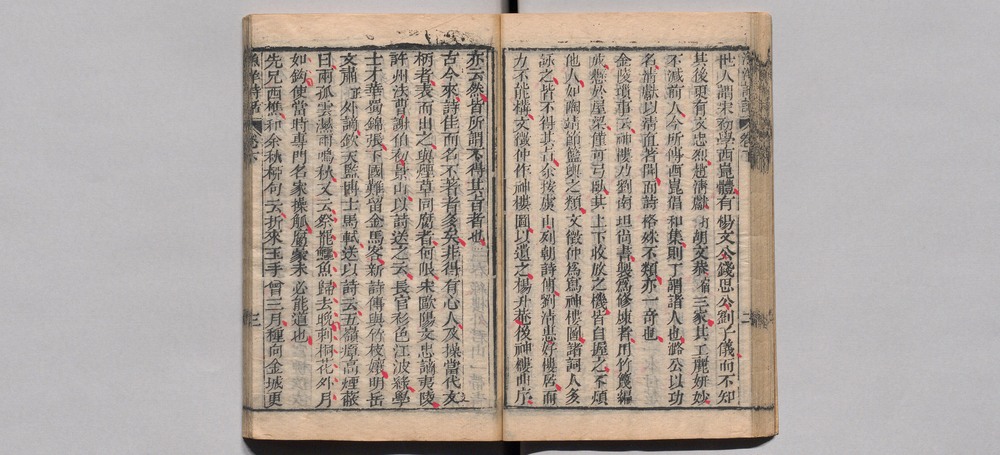 世人謂宋初學西崑體有楊文公錢思公劉子儀而不知
其後更有文忠烈趙清獻胡文恭宿三家其工麗妍妙
不減前人今所傳西崑倡和集則丁謂諸人也潞公以功
名清獻以清直著聞而詩格殊不類亦一奇也
金陵瑣事云神樓乃劉南坦尚書製為修煉者用竹篾編
成懸於屋梁僅可弓臥其上下收放之機皆自握之不煩
他人如陶靖節籃輿之類文徵仲為寫神樓圖諸詞人多
詠之皆不得其旨余按虞山列朝詩傳劉清惠好樓居而
力不能構文徵仲作神樓圖以遺之楊升菴後神樓曲序
亦云然皆所謂不得其旨者也
古今來詩佳而名不著者多矣非得有心人及操當代文
柄者表而出之與煙草同腐者何限宋歐陽文忠謫夷陵
許州法曹謝伯初景山以詩送之云長官衫色江波綠學
士才華蜀錦張下國難留金馬客新詩傳與竹枝孃明岳
文肅正外謫欽天監博士馬軾送以詩云五嶺瘴高煙蔽
日兩孤雲濕雨鳴秋又云祭罷鱷魚歸去晚刺桐花外月
如鉤使當時專門名家操觚廣家未必能道也
先兄西樵和余秋柳句云折來玉手曾三月種向金城更
漁洋詩話
卷下
二
三